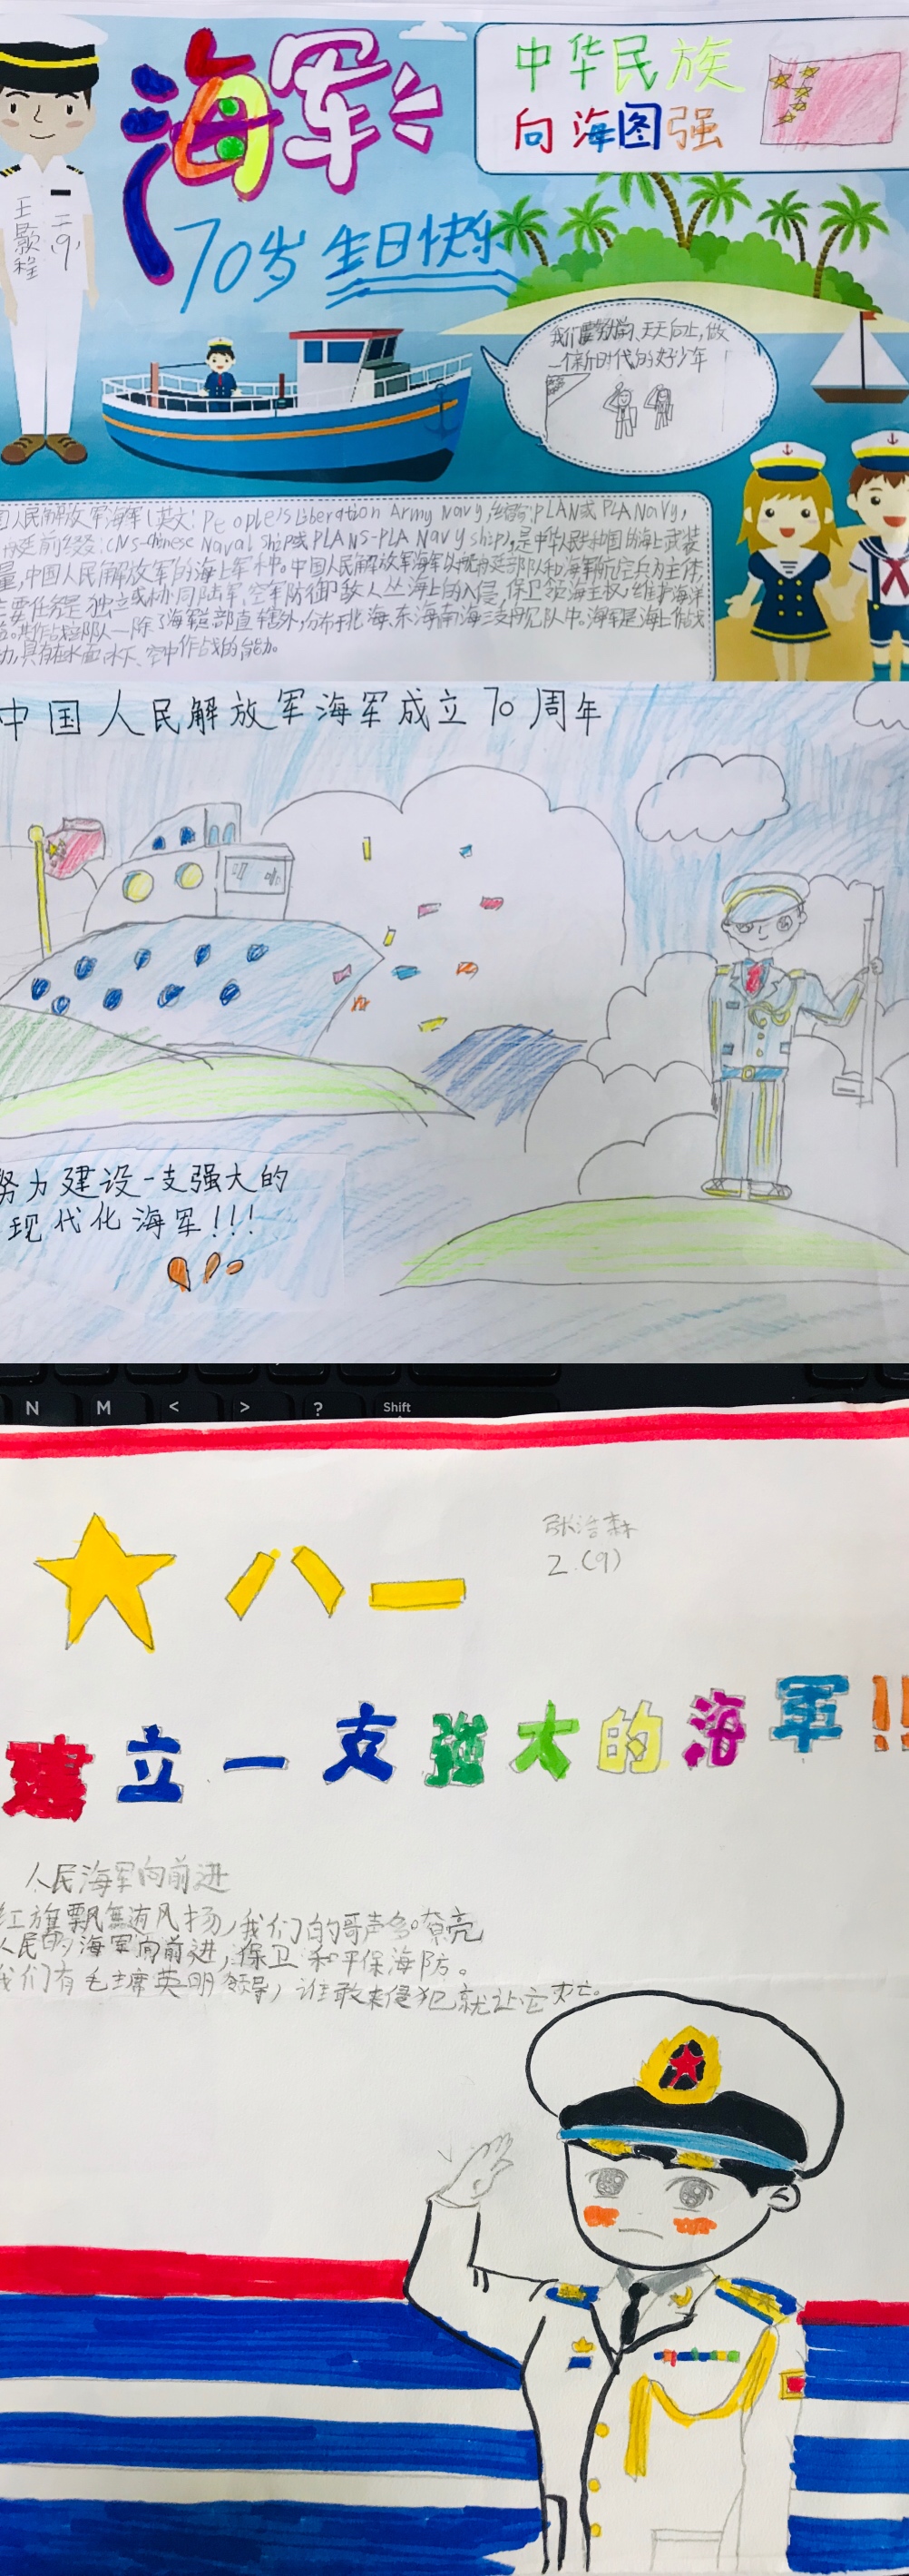 海军
中华民族
向海图强
70岁生日快乐
二(9)
王
程
我们要努力学习、天天向上,做
一个新时代的好少年
国人民解放军海军(英文:People's Liberation Army Navy,缩写:PLAN或PLA Navy,
舰艇前缀:CNS-Chinese Naval Ship或PLANS-PLA Navy ship),是中华人民共和国的海上武装
量,中国人民解放军的海上军种。中国人民解放军海军以舰艇部队和海军航空兵为主体,
主要任务是独立或协同陆军、空军防御敌人从海上的入侵,保卫领海主权,维护海洋
其作战部队一除了海军总部直辖外,分布于北海、东海、南海三支舰队中。海军是海上作战
力,具有在水面、水下、空中作战的能力。
中国人民解放军海军成立70周年
努力建设一支强大的
现代化海军!!!
N M < > ? Shift
八一
张浩森
2.(9)
建立一支强大的海军!!
人民海军向前进
红旗飘舞迎风扬,我们的歌声多嘹亮
人民的海军向前进,保卫和平保海防。
我们有毛主席英明领导,谁敢来侵犯就让它灭亡。